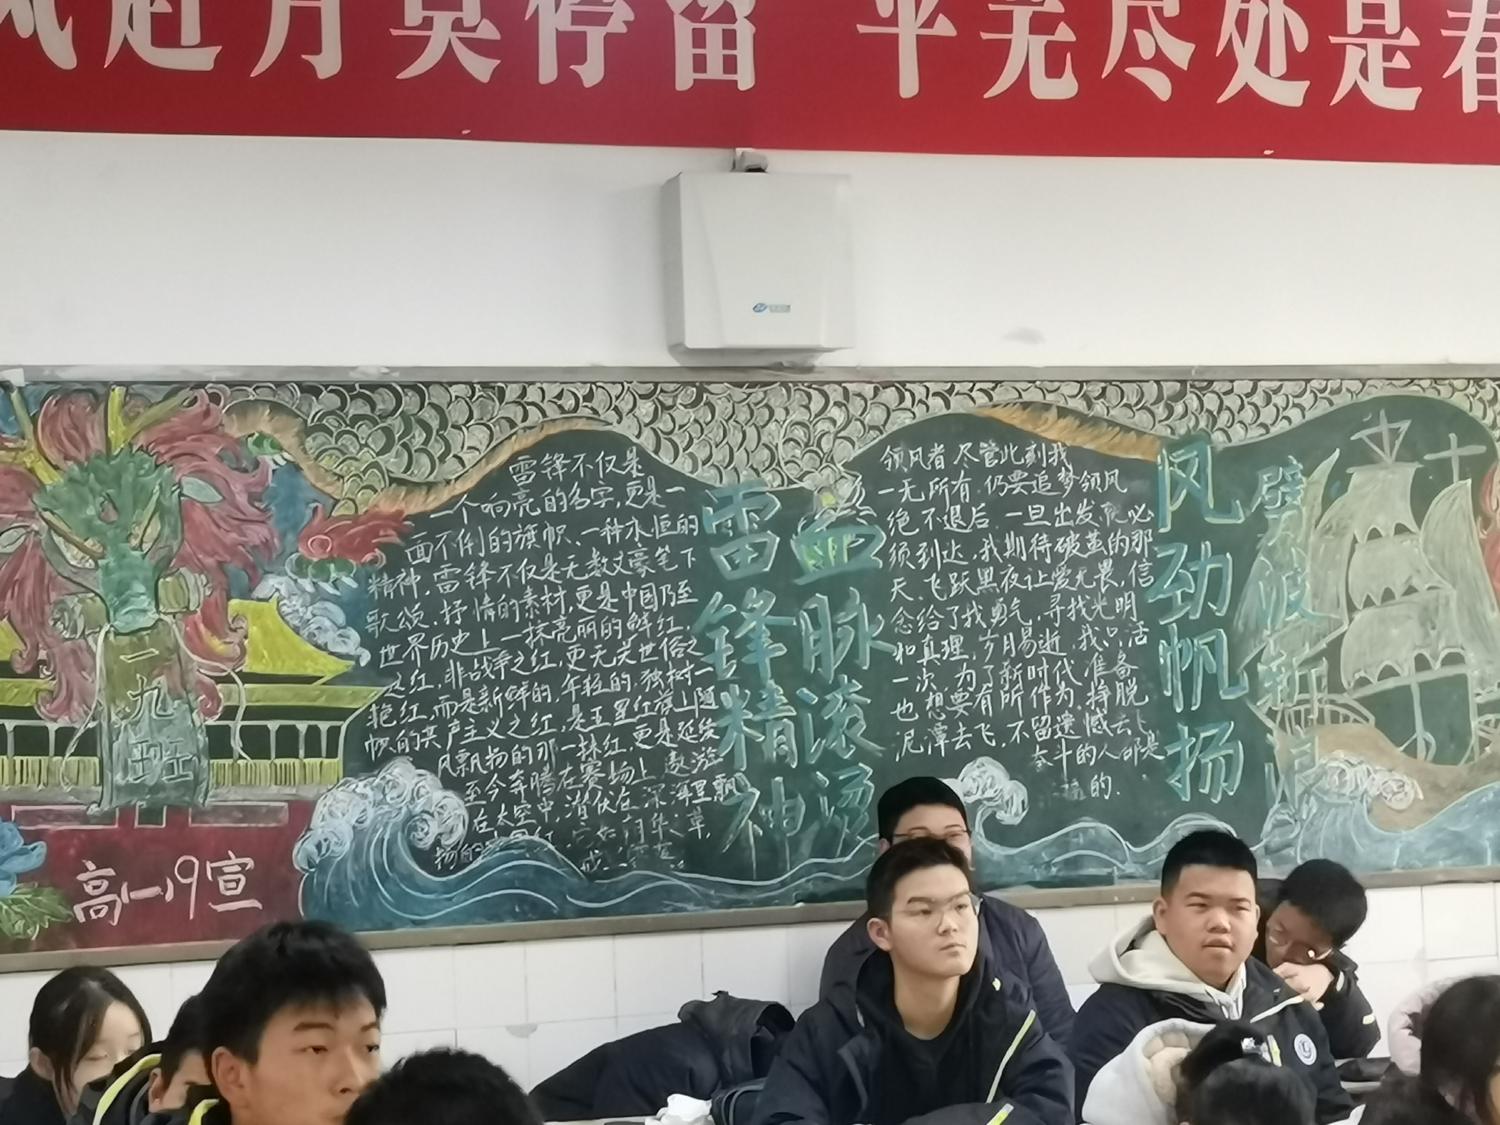 赶月莫停留 平芜尽处是春
雷锋不仅是
一个响亮的名字,更是一
面不倒的旗帜、一种永恒的
精神,雷锋不仅是无数文豪笔下
歌颂、抒情的素材,更是中国乃至
世界历史上一抹亮丽的鲜红,
之红,非战争之红,更无关世俗之
艳红,而是新鲜的,年轻的,独树一
帜的共产主义之红,是五星红旗上随
风飘扬的那一抹红,更是延续
至今奔腾在赛场上,遨游
在太空中,潜伏在深海里飘
雷锋精神
血脉滚烫
领风者,尽管此刻我
一无所有,仍要追梦领风
绝不退后,一旦出发,必
须到达,我期待破茧的那
天,飞跃黑夜让爱无畏,信
念给了我勇气,寻找光明
和真理,岁月易逝,我只活
一次,为了新时代,准备
也想要有所作为,挣脱
泥潭去飞,不留遗憾去
奋斗的人都是
的.
风劲帆扬
劈波斩浪
一九班
高一19宣